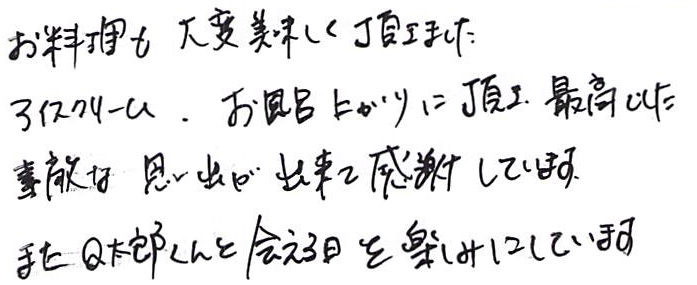 お料理も 大変美味しく頂きました
アイスクリーム、お風呂上がりに頂き 最高でした
素敵な思い出が出来て感謝しています。
またQ太郎くんと会える日を楽しみにしています